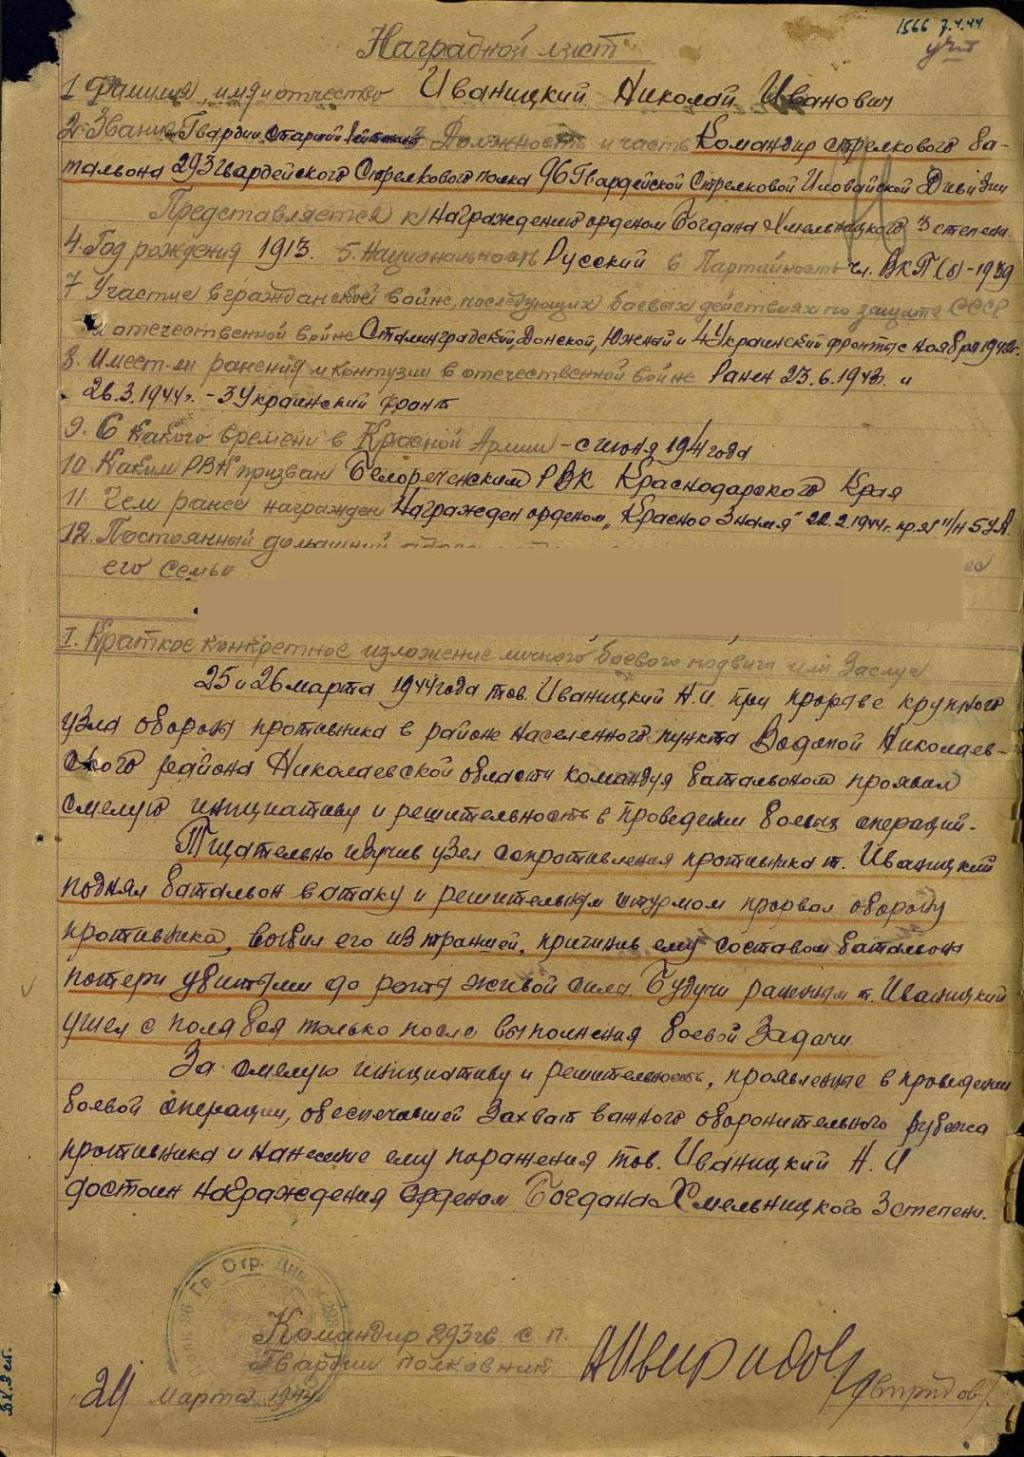 1566 7.4.44
учт
Наградной лист
1 Фамилия, имя и отчество Иваницкий Николай Иванович
2. Звание Гвардии старший лейтенант 3 Должность и часть Командир стрелкового ба-
тальона 293 Гвардейского Стрелкового полка 96 Гвардейской Стрелковой Иловайской Дивизии
Представляется к награждению орденом Богдана Хмельницкого 3 степени
4. Год рождения 1913. 5. Национальность Русский 6 Партийность чл. ВКП(б) - 1939
7 Участие в гражданской войне, последующих боевых действиях по защите СССР
и отечественной войне Сталинградский, Донской, Южный и 4 Украинский фронты с ноября 1942г.
8. Имеет ли ранения и контузии в отечественной войне Ранен 23.6.1942г. и
26.3.1944г. - 3 Украинский фронт
9. С какого времени в Красной Армии - с июня 1941 года
10. Каким РВК призван Белореченским РВК Краснодарского Края
11. Чем ранее награжден Награжден орденом "Красное Знамя" 22.2.1944г. пр. №11/н 5 УА.
12. Постоянный домашний
его семьи
I. Краткое конкретное изложение личного боевого подвига или заслуг
25 и 26 марта 1944 года тов. Иваницкий Н.И. при прорыве крупного
узла обороны противника в районе населенного пункта Водяной Николаев-
ского района Николаевской области командуя батальоном проявил
смелую инициативу и решительность в проведении боевых операций.
Тщательно изучив узел сопротивления противника т. Иваницкий
поднял батальон в атаку и решительным штурмом прорвал оборону
противника, выбил его из траншей, причинив ему составом батальона
потери убитыми до роты живой силы. Будучи раненым т. Иваницкий
ушел с поля боя только после выполнения боевой задачи
За смелую инициативу и решительность, проявленные в проведении
боевой операции, обеспечившей захват важного оборонительного рубежа
противника и нанесение ему поражения тов. Иваницкий Н.И
достоин награждения Орденом Богдана Хмельницкого 3 степени.
Командир 293 гв. с п.
Гвардии полковник
Свиридов
/Свиридов/
"29 марта 1944